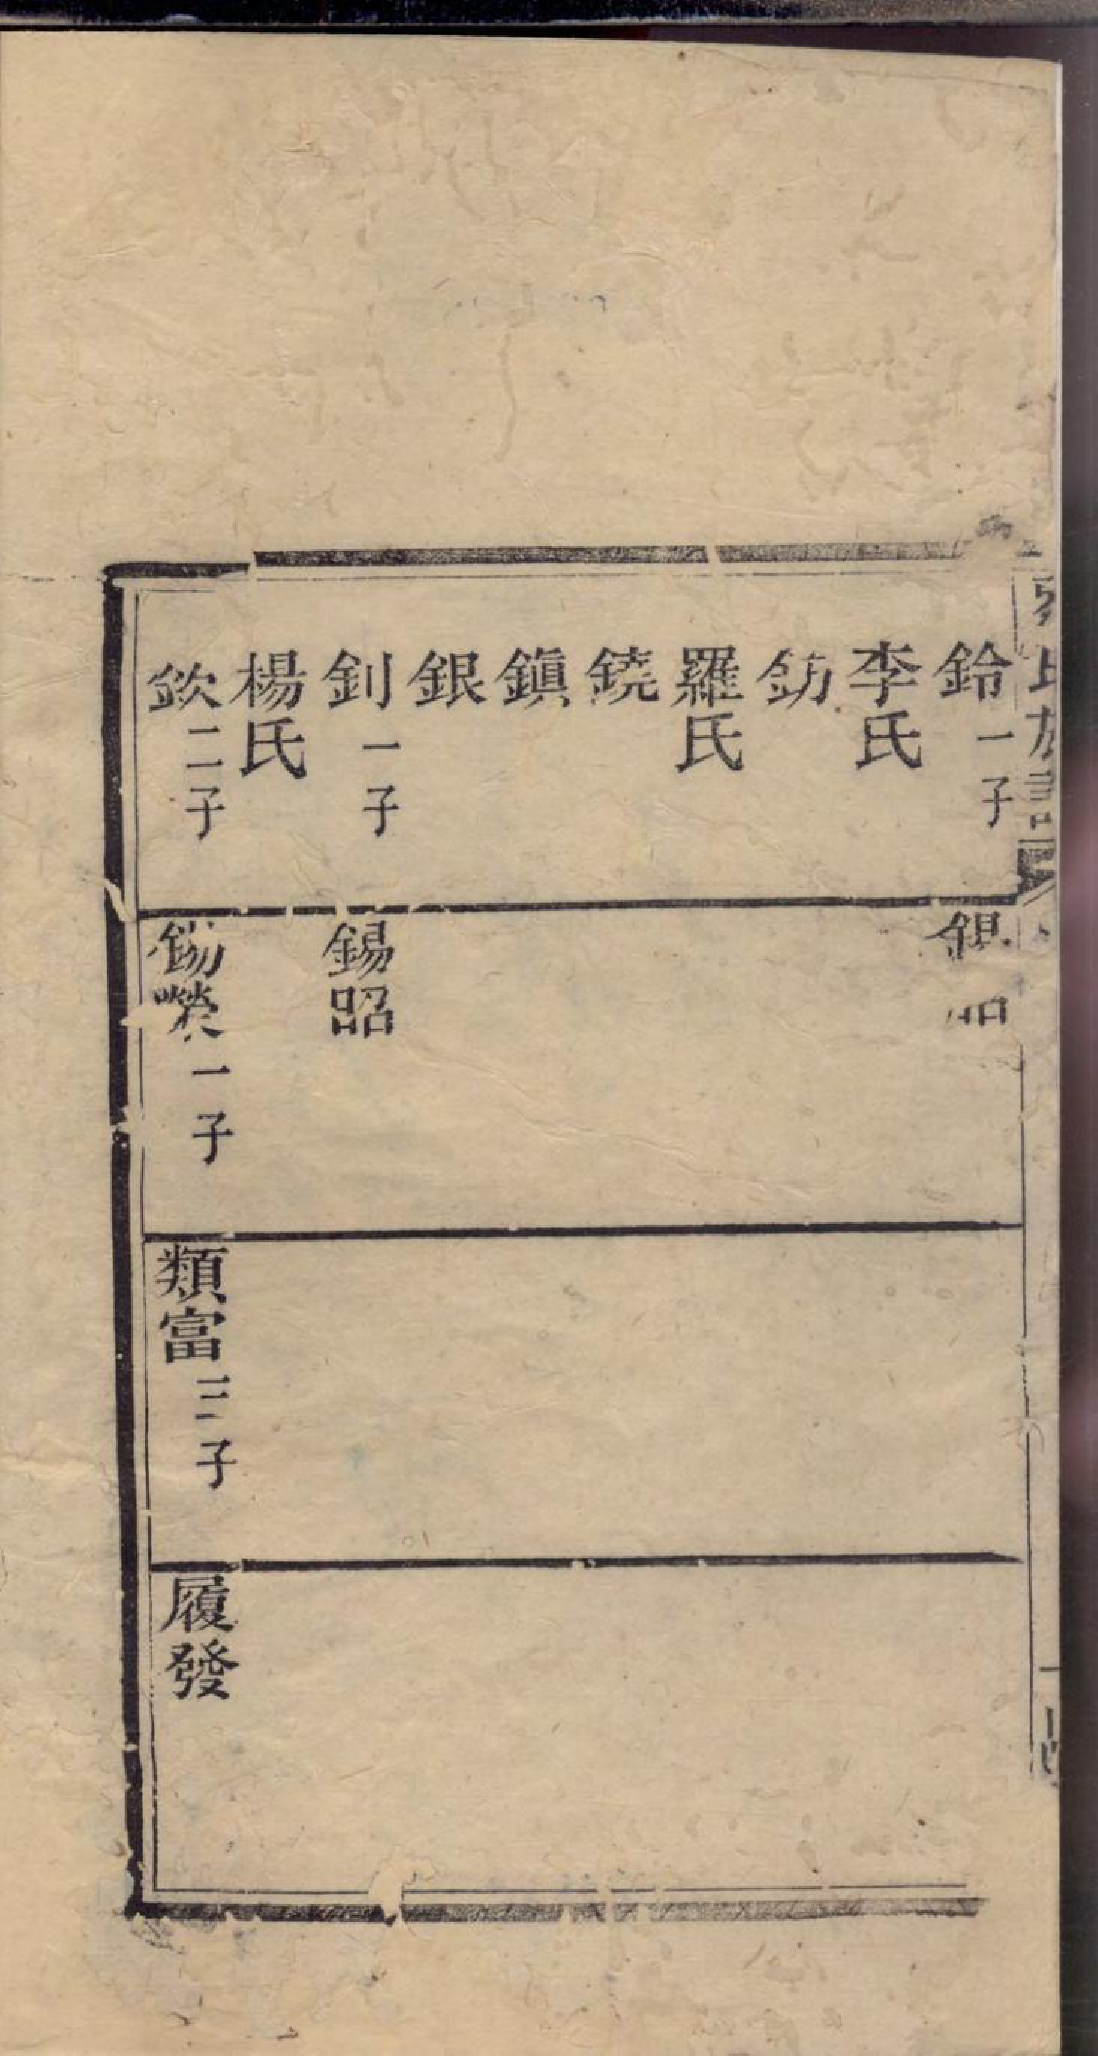 氏族譜
鈴一子
李氏
鈁
羅氏
鐃
鎮
銀
釗一子
楊氏
欽二子
錫昭
錫榮一子
類富三子
履發